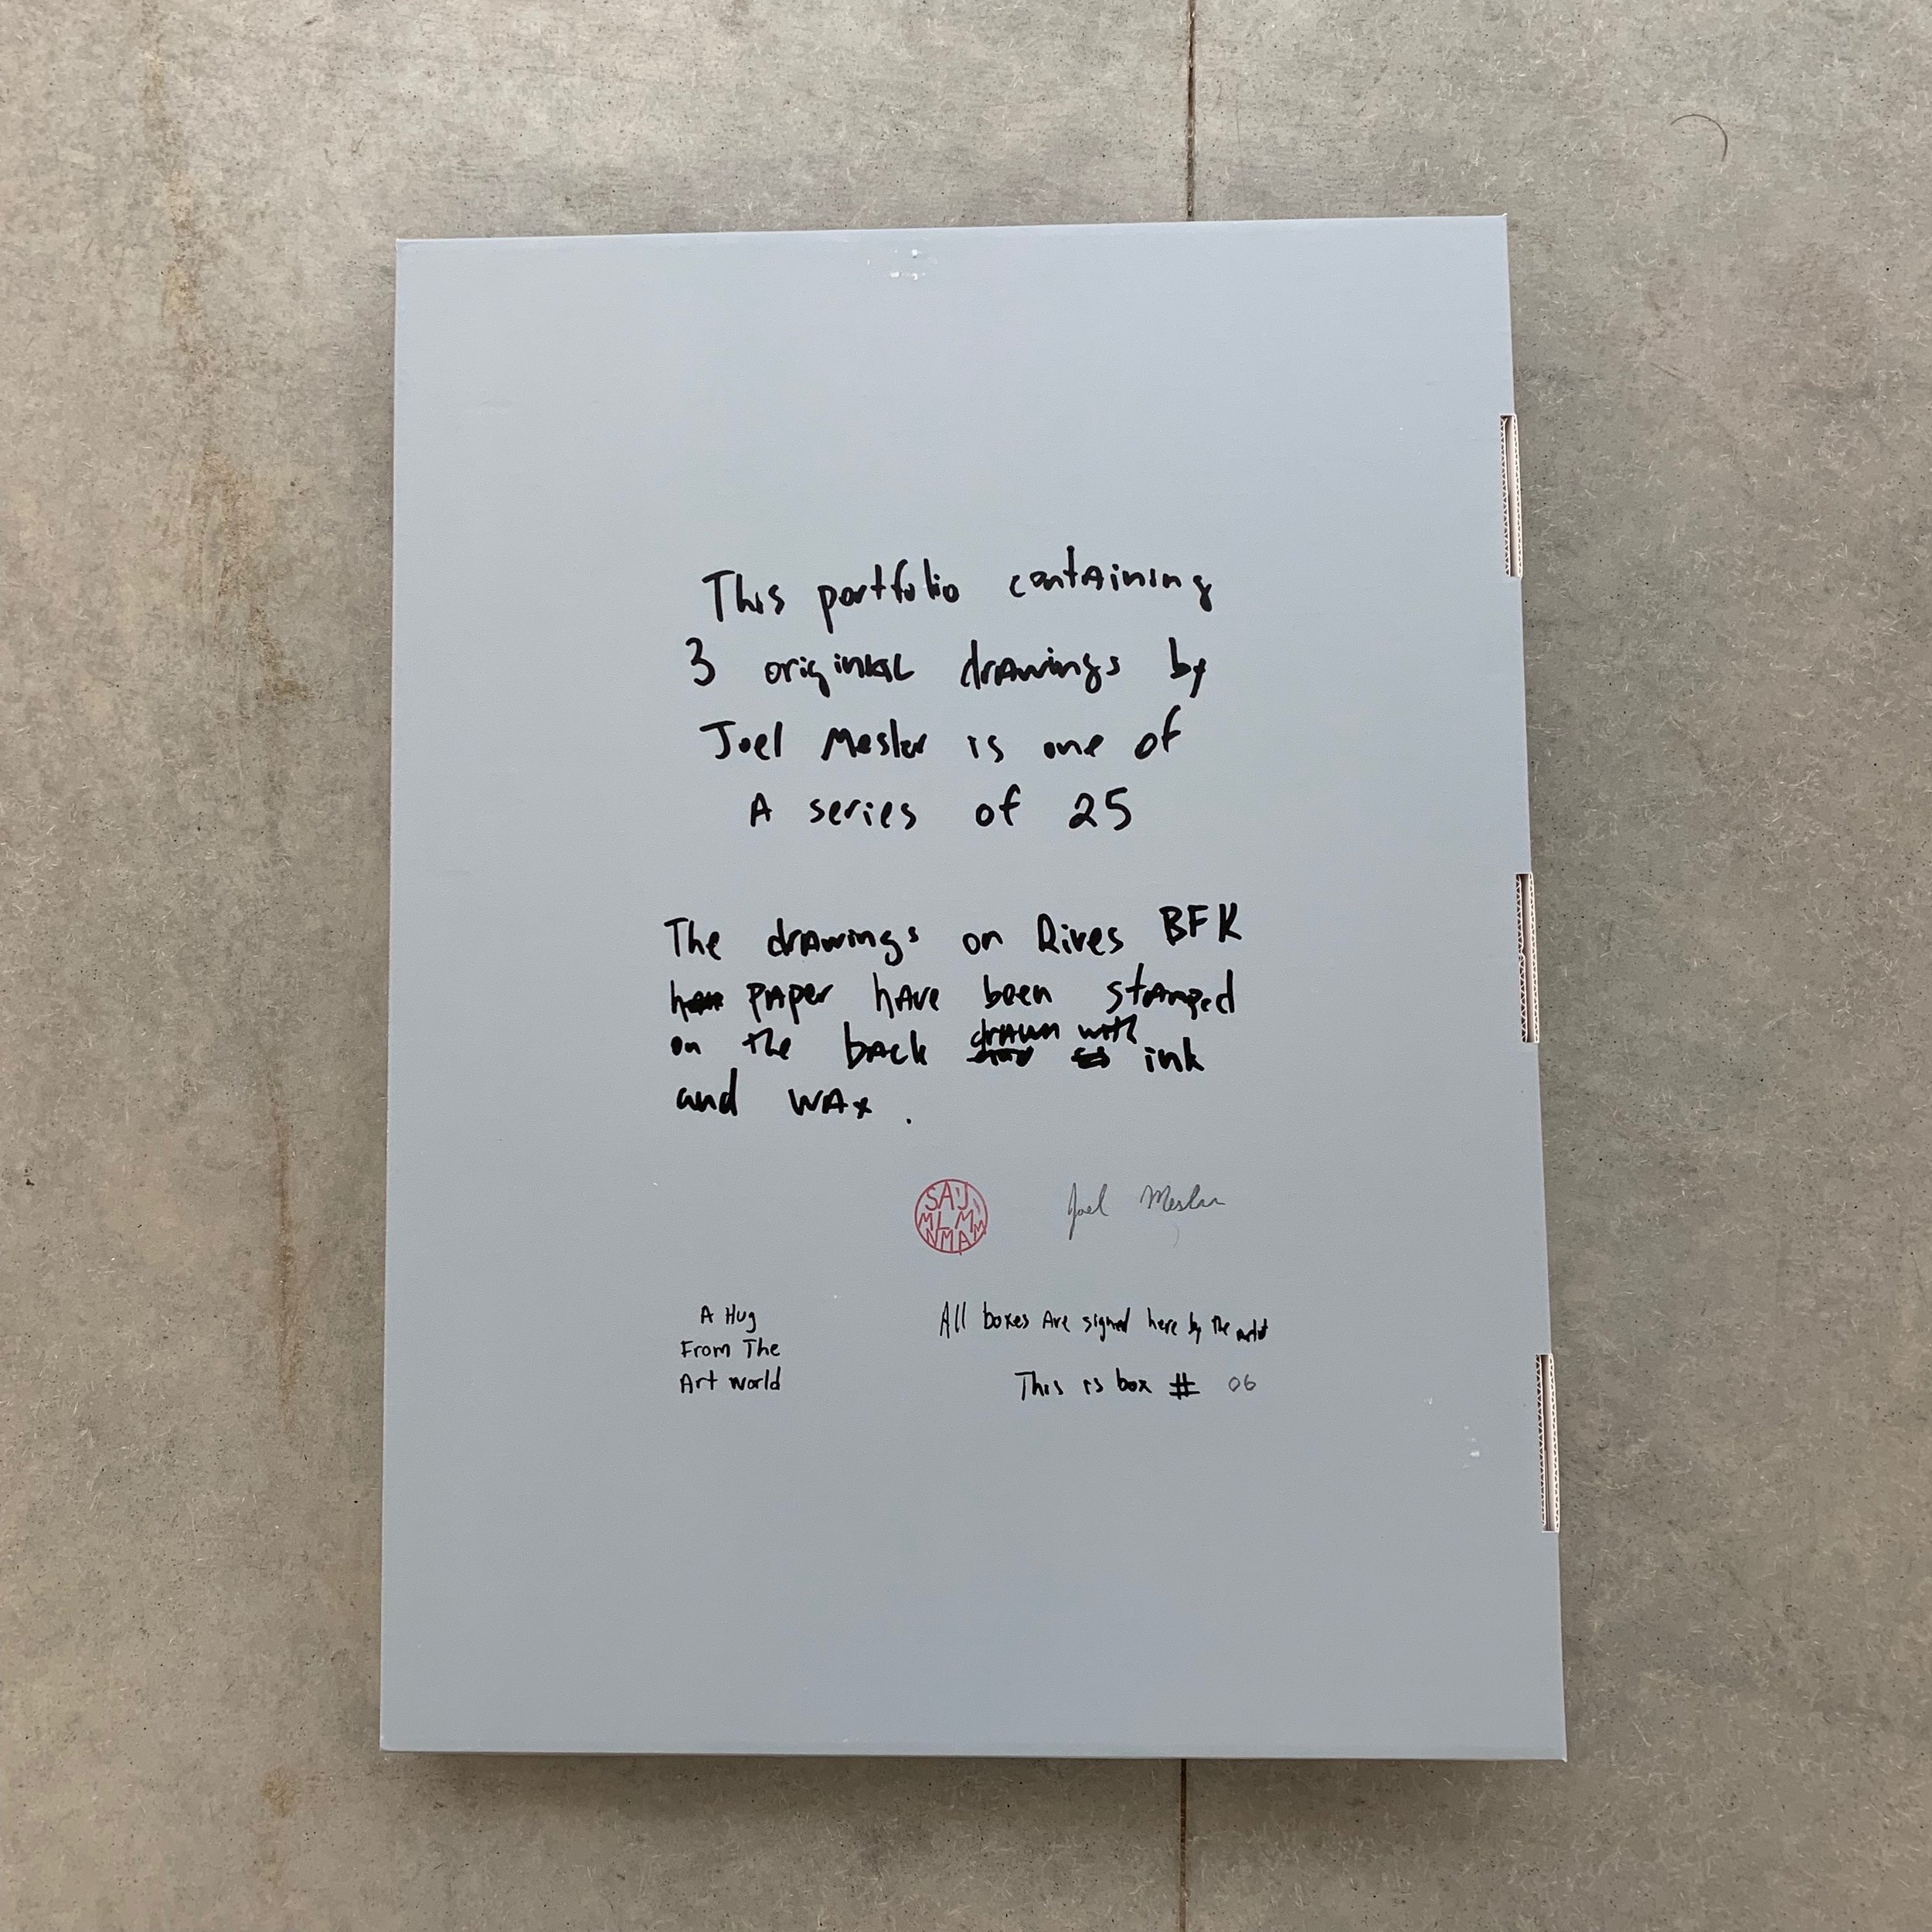 This portfolio containing
3 original drawings by
Joel Mesler is one of
A series of 25
The drawings on Rives BFK
PAPER hAve been stamped
on the back drawn with ink
and WAx .
SA'J
MLMM
NMA
Joel Mesler
A Hug
From The
Art world
All boxes Are signed here by The artist
This is box # 06